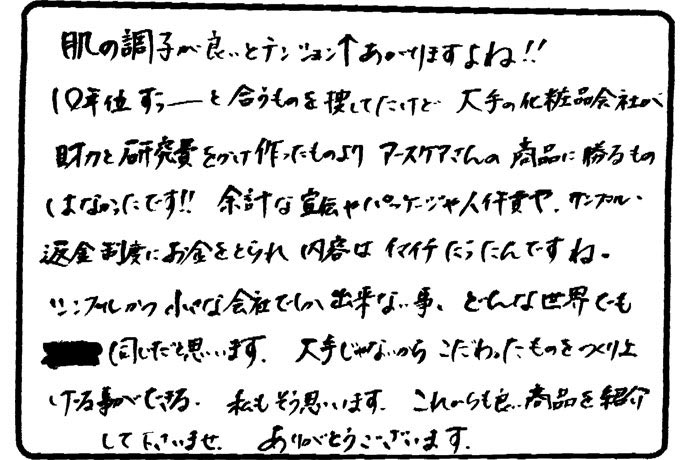 肌の調子が良いとテンション↑あがりますよね!!
10年位ずっーと合うものを捜してたけど 大手の化粧品会社が
財力と研究費をかけ作ったものより アースケアさんの商品に勝るもの
はなかったです!! 余計な宣伝やパッケージや人件費や、サンプル・
返金制度にお金をとられ 内容はイマイチだったんですね。
シンプルかつ小さな会社でしか出来ない事、どんな世界でも
同じだと思います。大手じゃないから こだわったものをつくり上
げる事ができる。私もそう思います。これからも良い商品を紹介
して下さいませ。ありがとうございます。